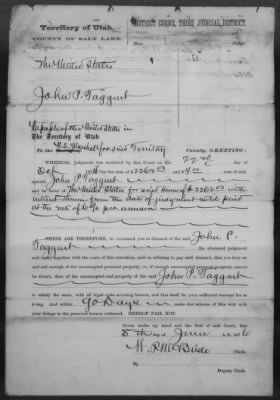 Territory of Utah,
COUNTY OF SALT LAKE
DISTRICT COURT, THIRD JUDICIAL DISTRICT.
The United States
John P. Taggart
The People of the United States in
The Territory of Utah
To the U.S. Marshal for said Territory
County, GREETING:
WHEREAS, Judgment was rendered by this Court on the 22nd day of
Oct
John P. Taggart
The United States for said sum of $2262.03 with
interest thereon from the date of judgment until paid
at the rate of 6% per annum
THESE ARE THEREFORE, to command you to demand of the said John P.
Taggart the aforesaid judgment
and costs together with the costs of this execution, and on refusing to pay said demand, that you levy on
and sell enough of the unexempted personal property, or, if enough unexempted personal property cannot
be found, then of the unexempted real property of the said John P. Taggart
to satisfy the same, with all legal costs accruing hereon, and this shall be your sufficient warrant for so
doing. And within 90 Days make due return of this writ with
your doings in the premises hereon endorsed. HEREOF FAIL NOT.
Given under my hand and the Seal of said Court, this
5th day of June A.D. 1876
W. P. McBride
Clerk.
By
Deputy Clerk.